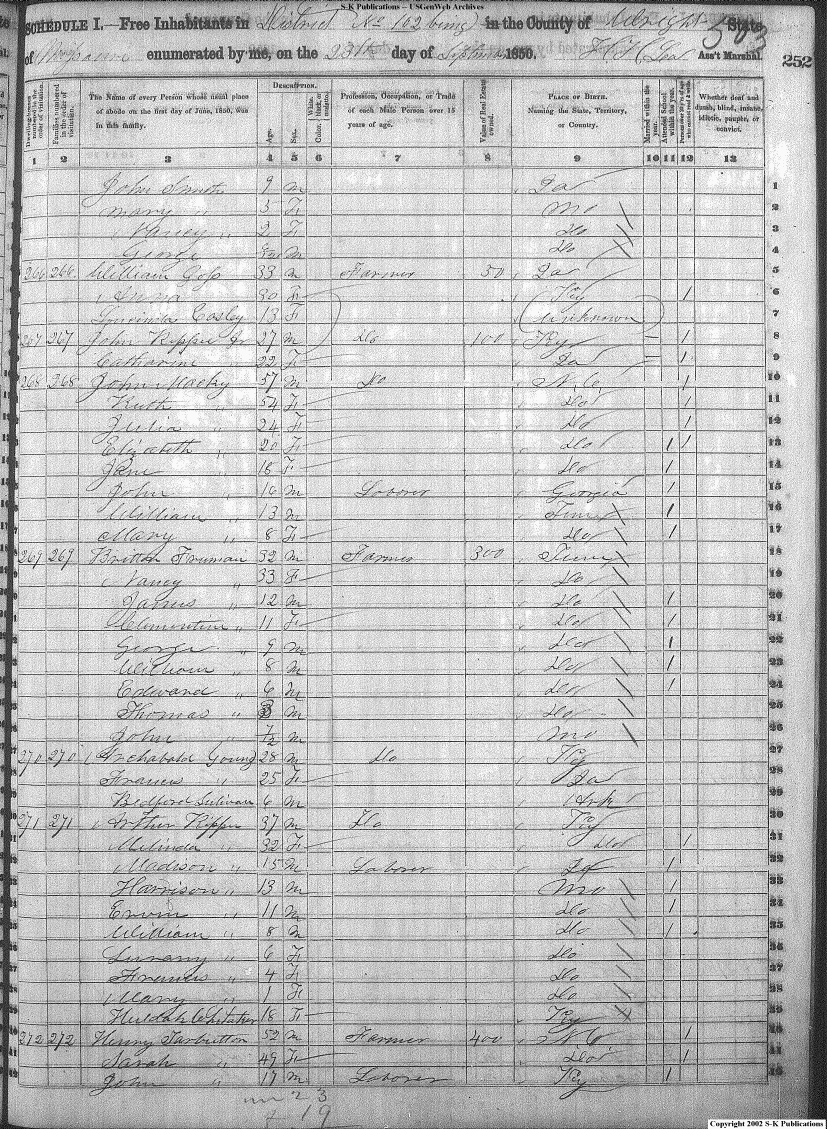 S-K Publications -- USGenWeb Archives
SCHEDULE I.—Free Inhabitants in District No 102 being in the County of Wright State
of enumerated by me, on the 23th day of September 1850. Ass't Marshal. 503 252
Dwelling-houses numbered in the order of visitation.
Families numbered in the order of visitation.
The Name of every Person whose usual place of abode on the first day of June, 1850, was in this family.
Description.
Age. Sex. Color, White, black, or mulatto.
Profession, Occupation, or Trade of each Male Person over 15 years of age.
Value of Real Estate owned.
Place of Birth. Naming the State, Territory, or Country.
Married within the year. Attended School within the year.
Whether deaf and dumb, blind, insane, idiotic, pauper, or convict.
1 2 3 4 5 6 7 8 9 10 11 12 13
John Smith 9 M Ia 1
Mary " 5 F Mo 2
Nancy " 2 F Do 3
George M Do 4
266 266 William Goss 33 M Farmer 50 Ia 5
Anna 30 F Ky 1 6
Cosley 13 F Unknown 7
267 267 John Rippee Jr 27 M Do 100 Ky 1 8
Catharine 22 F Ia 1 9
268 268 John Macky 57 M Do N.C. 1 10
Ruth " 54 F Do 1 11
Julia " 24 F Do 1 12
Elizabeth " 20 F Do 1 1 13
Jane " 18 F Do 1 14
John " 16 M Laborer Georgia 1 15
William " 13 M Tenn 1 16
Mary " 8 F Do 1 17
269 269 Britton Freeman 32 M Farmer 300 Tenn 18
Nancy " 33 F Do 19
James " 12 M Do 1 20
Clementine " 11 F Do 1 21
George " 9 M Do 1 22
William " 8 M Do 1 23
Edward " 6 M Do 1 24
Thomas " 3 M Do 25
John " 7/12 M Mo 26
270 270 Archabald Young 28 M Do Ky 27
Frances " 25 F Ia 28
Bedford Sulivan 6 M Ark 29
271 271 Arther Rippee 37 M Do Ky 30
Melinda " 32 F Do 1 31
Madison " 15 M Laborer Ia 1 32
Harrison " 13 M Mo 1 33
Ervin " 11 M Do 1 34
William " 8 M Do 1 35
" 6 F Do 36
" 4 F Do 37
Mary " 1 F Do 38
Huldah Whitaker 18 F Ky 39
272 272 Henry Tarbutton 52 M Farmer 400 N.C. 1 40
Sarah " 49 F Do 1 41
John " 17 M Laborer Ky 1 42
m 23
f 19
Copyright 2002 S-K Publications